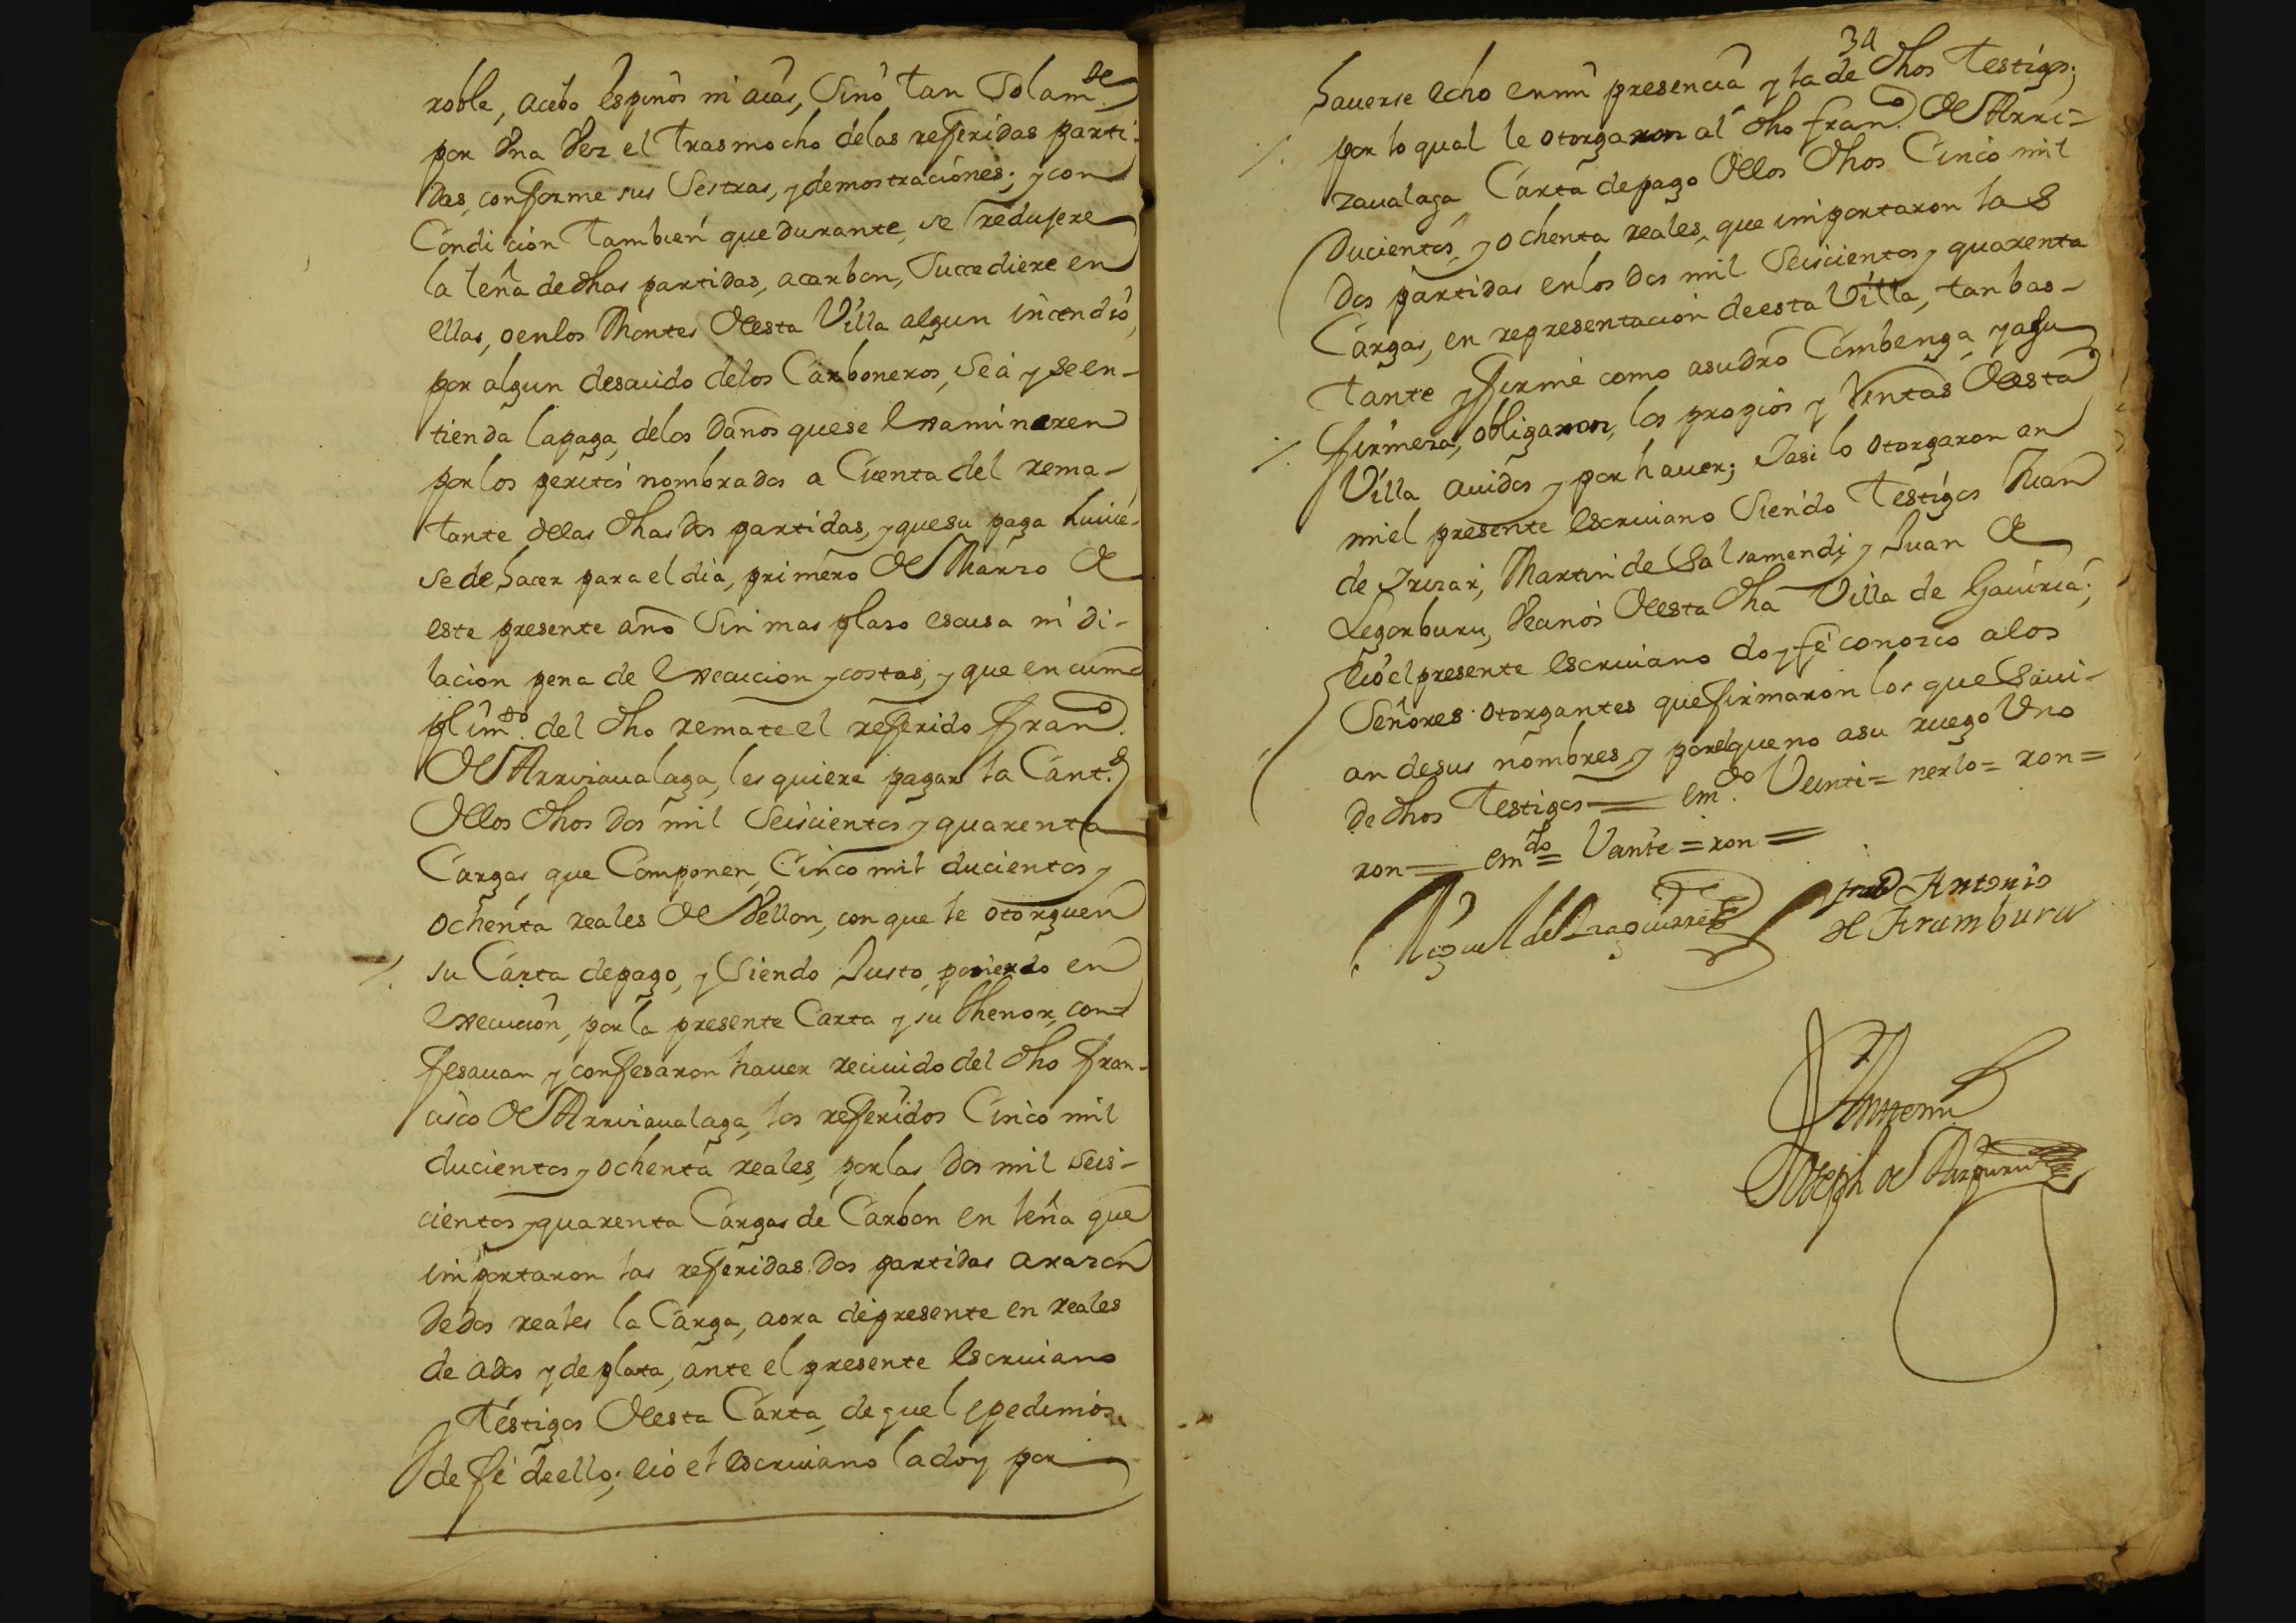 roble, acebo espinos ni acas, Sino tan Solam.te
por Una Vez el trasmocho delas referidas parti-
das, conforme sus Sestras, y demostraciones; y con
Condicion tambien que durante, se redujere
la leña de dhas partidas, acarbon, Succediere en
ellas, o enlos Montes Desta Villa algun incendio,
por algun descuido delos Carboneros, Sea y se en-
tienda la paga, delos daños que se examinaren
por los peritos nombrados a Cuenta del rema-
tante dellas dhas dos partidas, y que su paga huvie-
se de hacer para el dia, primero De Marzo De
este presente año Sin mas plaso escusa ni di-
lacion pena de execucion y costas, y que en cum-
plim.to del dho remate el referido Fran.co
De Arrizaualaga, les quiere pagar la Cant.d
Dellos dhos dos mil Seiscientos y quarenta
Cargas que Componen, Cinco mil ducientos y
ochenta reales De Vellon, con que le otorguen
su Carta depago, y Siendo Justo, poniendo en
execucion, por la presente Carta y su thenor, con-
fesauan y confesaron hauer reciuido del dho Fran-
cisco De Arrizaualaga, los referidos Cinco mil
ducientos y ochenta reales, por las dos mil seis-
cientos y quarenta Cargas de Carbon en leña que
importaron las referidas dos partidas a razon
de dos reales la Carga, aora depresente en reales
de ados y de plata, ante el presente escriuano
y testigos Desta Carta, de que le pedimos
de fe deello; e io el escriuano la doy por
34
hauerse echo en mi presencia y la de dhos testigos;
por lo qual le otorgaron al dho Fran.co De Arri=
zaualaga, Carta depago Dellos dhos Cinco mil
Ducientos, y ochenta reales, que importaron las
dos partidas enlos dos mil Seiscientos y quarenta
Cargas, en representacion deesta Villa, tan bas-
tante y firme como asudro Combenga, y asu
firmeza, obligaron, los propios y Rentas Desta
Villa auidos y por hauer; Iasi lo otorgaron an
miel presente escriuano Siendo testigos Juan
de Irizar, Martin de Salsamendi, y Juan De
Legorburu, Vecinos Desta dha Villa de Gauiria;
e io el presente escriuano doy fe conozco alos
Señores otorgantes que firmaron los que Saui-
an desus nombres y por el que no asu ruego Uno
de dhos testigos= em.do Veinti= nerlo= ron=
ron= em.do= Vante= ron=
Miguel de Izaguirre
Antonio
de Aramburu
Ante mi
Joseph de